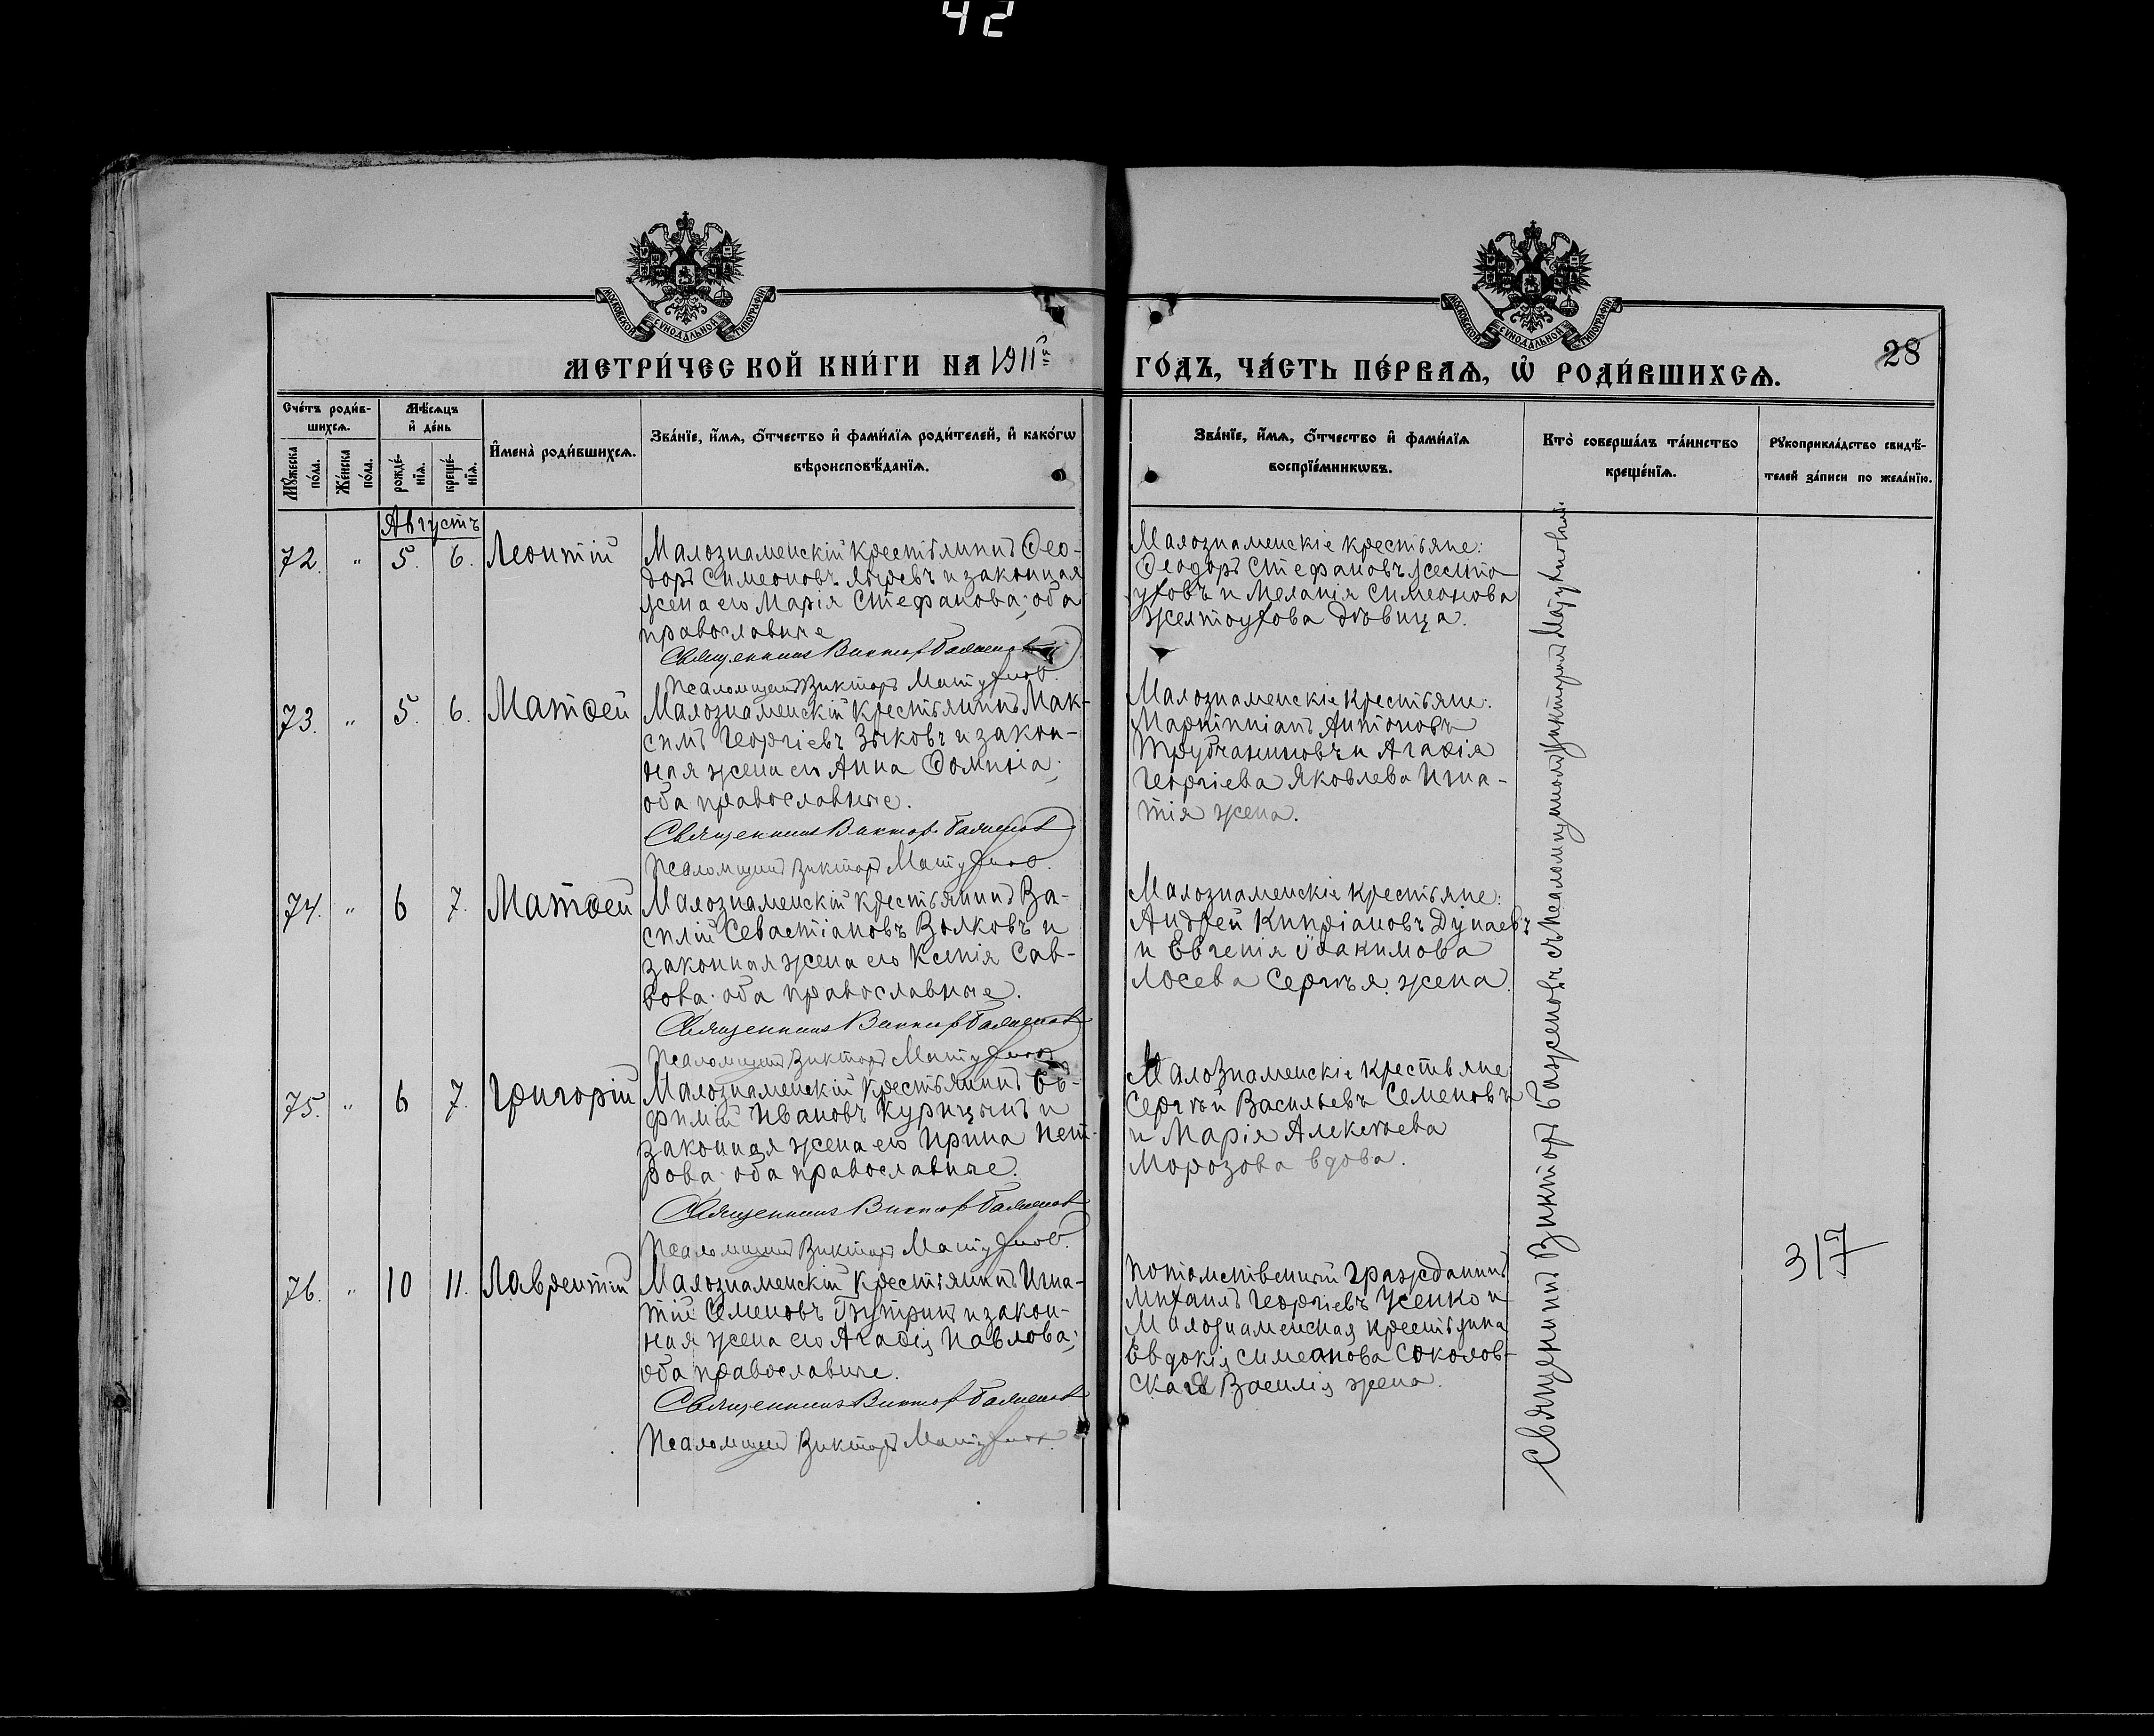 42
МОСКОВСКОЙ СУНОДАЛЬНОЙ ТИПОГРАФІИ
МОСКОВСКОЙ СУНОДАЛЬНОЙ ТИПОГРАФІИ
МЕТРИ́ЧЕСКОЙ КНИ́ГИ НА 1911й
ГО́ДЪ, ЧА́СТЬ ПЕ́РВАѦ, Ѡ҆ РОДИ́ВШИХСѦ.
28
Сче́тъ роди́в-
шихсѧ.
Мѣ́сѧцъ
и҆ де́нь
Мꙋ́жеска
по́ла.
Же́нска
по́ла.
рожде́-
нїѧ.
креще́-
нїѧ.
И҆мена̀ роди́вшихсѧ.
Зва́нїе, и҆́мѧ, ѻ҆́тчество и҆ фами́лїѧ роди́телей, и҆ како́гѡ
вѣроисповѣ́данїѧ.
Зва́нїе, и҆́мѧ, ѻ҆́тчество и҆ фами́лїѧ
воспрїе́мникѡвъ.
Кто̀ соверша́лъ та́инство
креще́нїѧ.
Рꙋкоприкла́дство свидѣ́-
телей за́писи по жела́нїю.
Августъ
72. " 5. 6. Леонтій
Малознаменскій крестьянинъ Ѳео-
доръ Симеоновъ и законная
жена его Марія Стефанова; оба
православные
Священникъ Викторъ Баженовъ
Псаломщикъ Викторъ Матухновъ.
Малознаменскіе крестьяне:
Ѳеодоръ Стефановъ Желто-
уховъ и Меланія Симеонова
Желтоухова дѣвица.
73. " 5. 6. Матѳей
Малознаменскій крестьянинъ Мак-
симъ Георгіевъ Зыковъ и закон-
ная жена его Анна Ѳомина;
оба православные.
Священникъ Викторъ Баженовъ
Псаломщикъ Викторъ Матухновъ.
Малознаменскіе крестьяне:
Мартиніанъ Антоновъ
Трубчаниновъ и Агаѳія
Георгіева Яковлева Игна-
тія жена.
74. " 6 7. Матѳей
Малознаменскій крестьянинъ Ва-
силій Севастіановъ Волковъ и
законная жена его Ксенія Сав-
вова; оба православные.
Священникъ Викторъ Баженовъ
Псаломщикъ Викторъ Матухновъ
Малознаменскіе крестьяне:
Андрей Кипріановъ Дунаевъ
и Евгенія Іоакимова
Лосева Сергѣя жена.
75. " 6 7. Григорій
Малознаменскій крестьянинъ Ев-
фимій Ивановъ Курицынъ и
законная жена его Ирина Пет-
рова; оба православные.
Священникъ Викторъ Баженовъ
Псаломщикъ Викторъ Матухновъ.
Малознаменскіе крестьяне
Сергѣй Васильевъ Семеновъ
и Марія Алексѣева
Морозова вдова.
76. " 10 11. Лаврентій
Малознаменскій крестьянинъ Игна-
тій Семеновъ Бутринъ и закон-
ная жена его Агаѳія Павлова;
оба православные.
Священникъ Викторъ Баженовъ
Псаломщикъ Викторъ Матухновъ.
Потомственный гражданинъ
Михаилъ Георгіевъ Усенко и
Малознаменская крестьянка
Евдокія Симеонова Соколов-
ская Василія жена.
Священникъ Викторъ Баженовъ съ псаломщикомъ Викторомъ Матухновымъ.
317